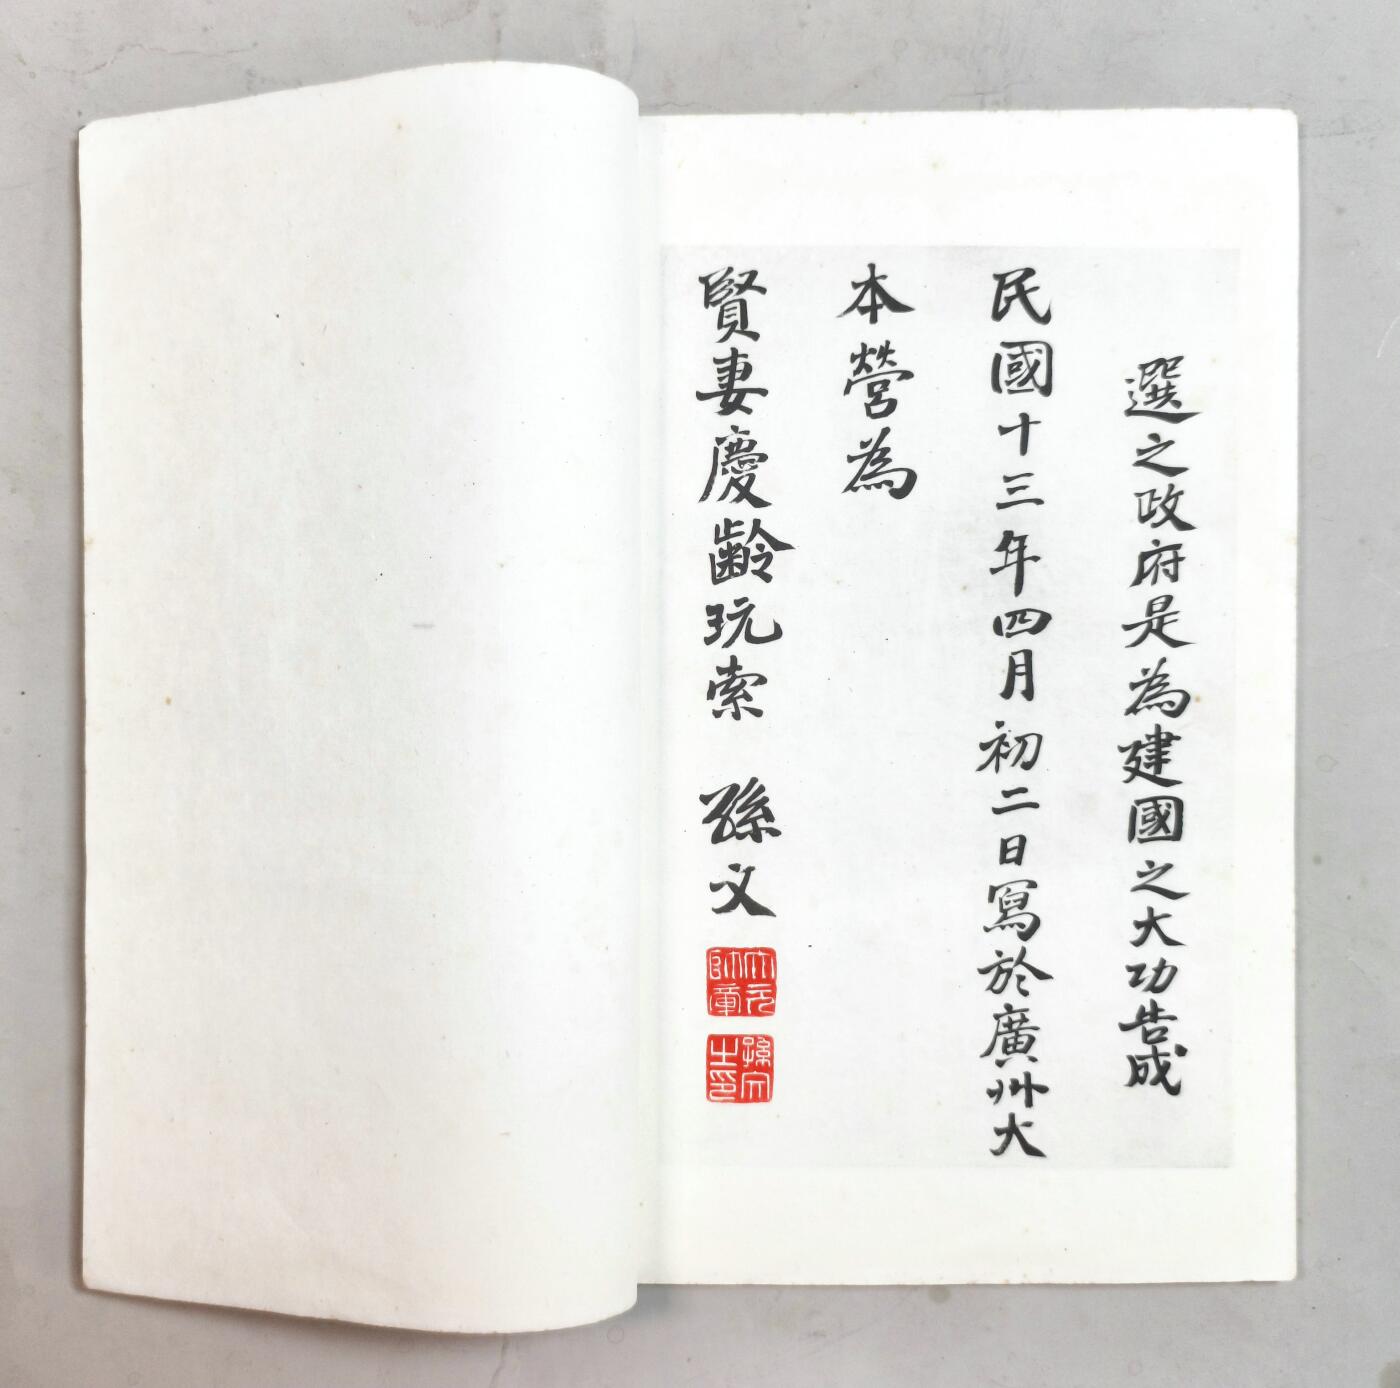 選之政府是為建國之大功告成
民國十三年四月初二日寫於廣州大
本營為
賢妻慶齡玩索 孫文
大元帥章
孫文之印